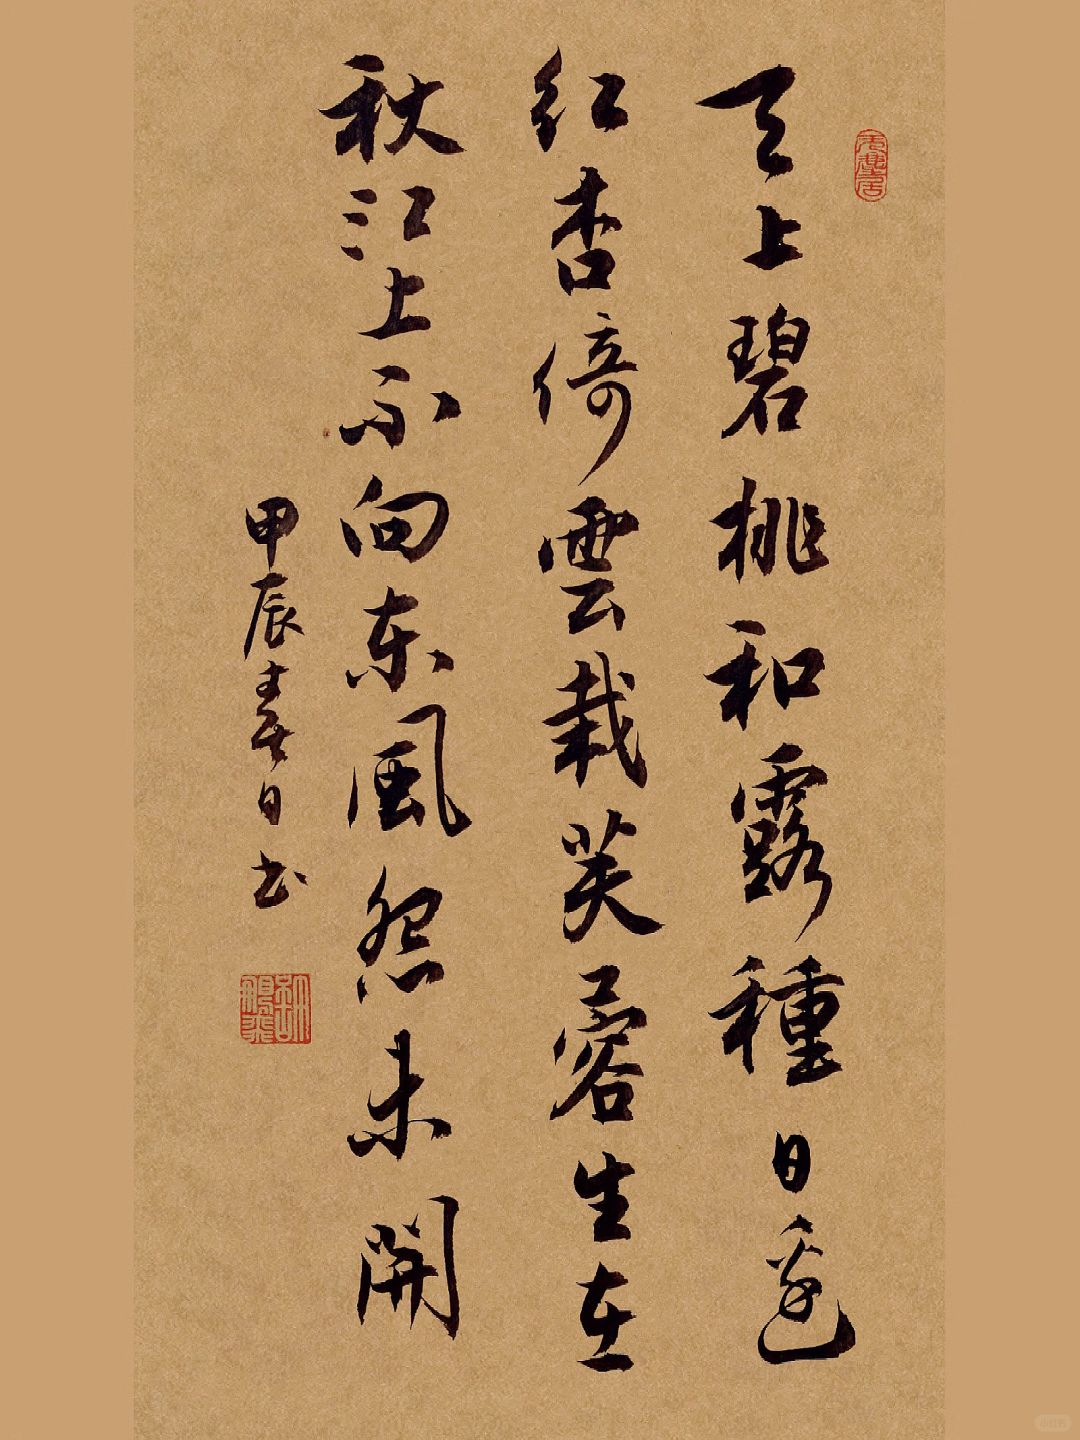 天上碧桃和露種日邊
红杏倚雲栽芙蓉生在
秋江上不向东風怨未開
甲辰春日书